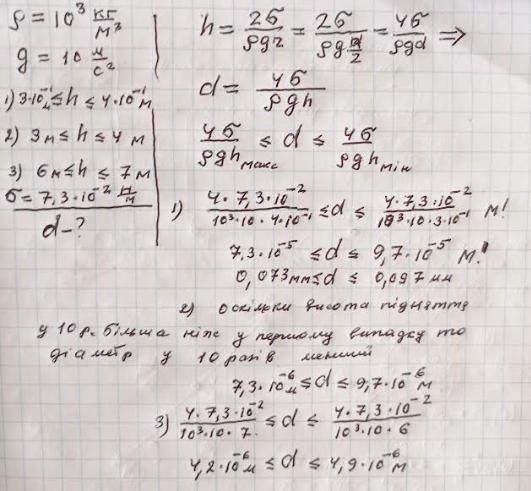 ρ = 10³ кг/м³
g = 10 м/с²
1) 3·10⁻¹м ≤ h ≤ 4·10⁻¹ м
2) 3м ≤ h ≤ 4 м
3) 6м ≤ h ≤ 7 м
σ = 7,3·10⁻² Н/м
d - ?
h = 2σ/ρgr = 2σ/ρg d/2 = 4σ/ρgd ⇒
d = 4σ/ρgh
4σ/ρgh макс ≤ d ≤ 4σ/ρgh мін
1) 4·7,3·10⁻²/10³·10·4·10⁻¹ ≤ d ≤ 4·7,3·10⁻²/10³·10·3·10⁻¹ м!
7,3·10⁻⁵ ≤ d ≤ 9,7·10⁻⁵ м!
0,073мм ≤ d ≤ 0,097 мм
2) оскільки висота підняття
у 10 р. більша ніж у першому випадку то
діаметр у 10 разів менший
7,3·10⁻⁶ м ≤ d ≤ 9,7·10⁻⁶ м
3) 4·7,3·10⁻²/10³·10·7. ≤ d ≤ 4·7,3·10⁻²/10³·10·6
4,2·10⁻⁶ м ≤ d ≤ 4,9·10⁻⁶ м